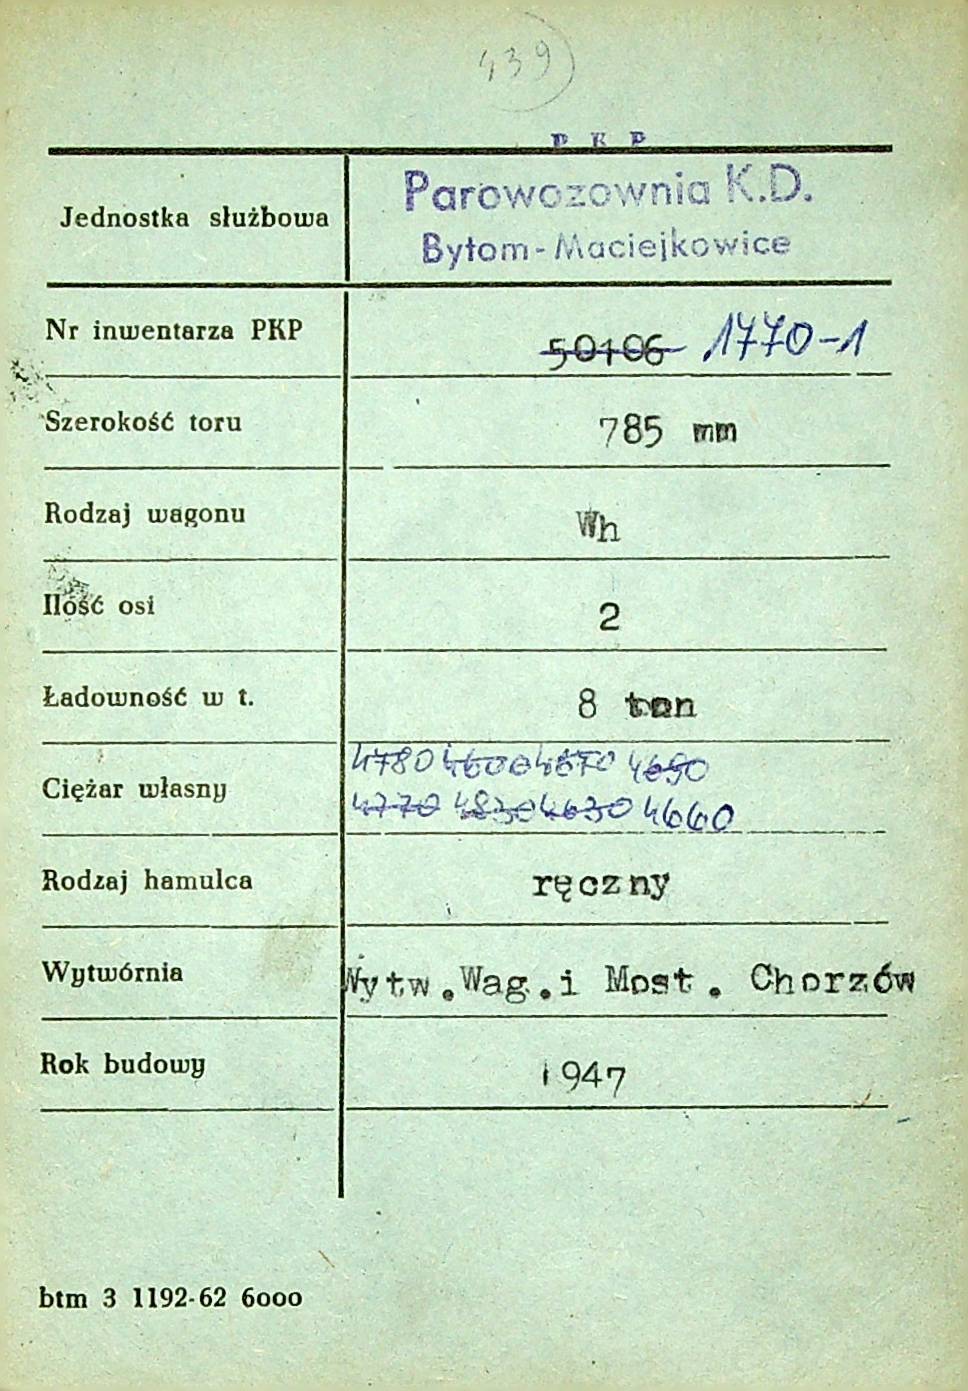 439
P K P
Jednostka służbowa Parowozownia K.D.
Bytom-Maciejkowice
Nr inwentarza PKP 50106 1770-1
Szerokość toru 785 mm
Rodzaj wagonu Wh
Ilość osi 2
Ładowność w t. 8 ton
4780 4600 4670 4690
Ciężar własny
4770 4830 4630 4660
Rodzaj hamulca ręczny
Wytwórnia Wytw.Wag.i Most. Chorzów
Rok budowy 1947
btm 3 1192-62 6000